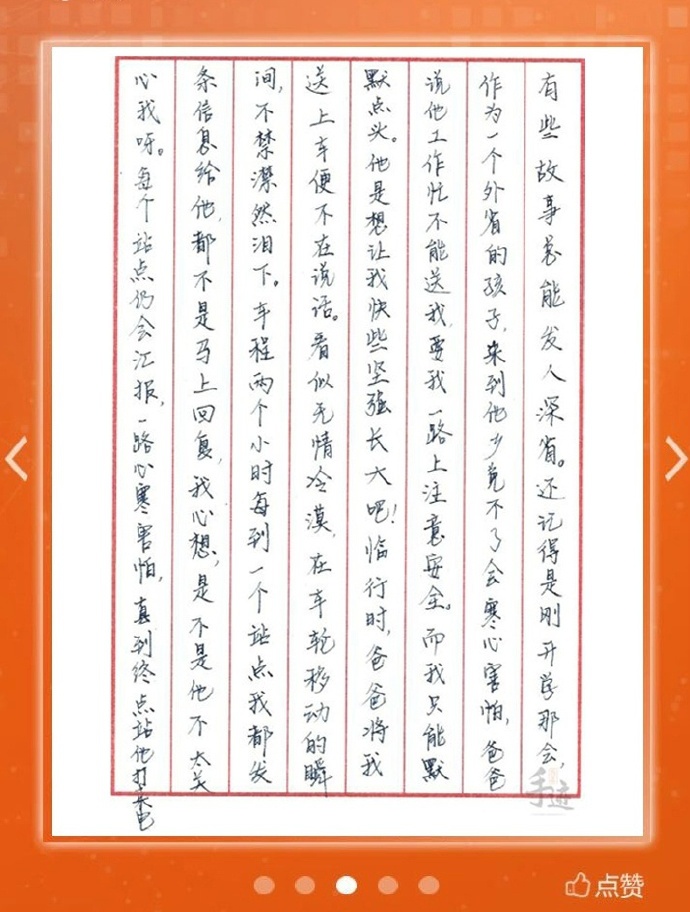 有些故事总能发人深省。还记得是刚开学那会，
作为一个外省的孩子，来到他乡免不了会寒心害怕，爸爸
说他工作忙不能送我，要我一路上注意安全。而我只能默
默点头。他是想让我快些坚强长大吧！临行时，爸爸将我
送上车便不在说话。看似无情冷漠，在车轮移动的瞬
间，不禁潸然泪下。车程两个小时每到一个站点我都发
条信息给他，都不是马上回复，我心想，是不是他不太关
心我呀。每个站点仍会汇报，一路心寒害怕，直到终点站他打来电
手迹
点赞